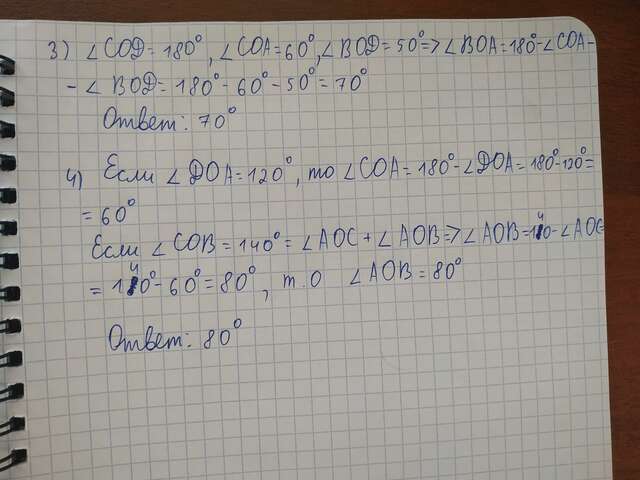 3) ∠COD = 180°, ∠COA = 60°, ∠BOD = 50° => ∠BOA = 180° - ∠COA -
- ∠BOD = 180° - 60° - 50° = 70°
Ответ: 70°
4) Если ∠DOA = 120°, то ∠COA = 180° - ∠DOA = 180° - 120° =
= 60°
Если ∠COB = 140° = ∠AOC + ∠AOB => ∠AOB = 140 - ∠AOC
= 140° - 60° = 80°, т.о ∠AOB = 80°
Ответ: 80°